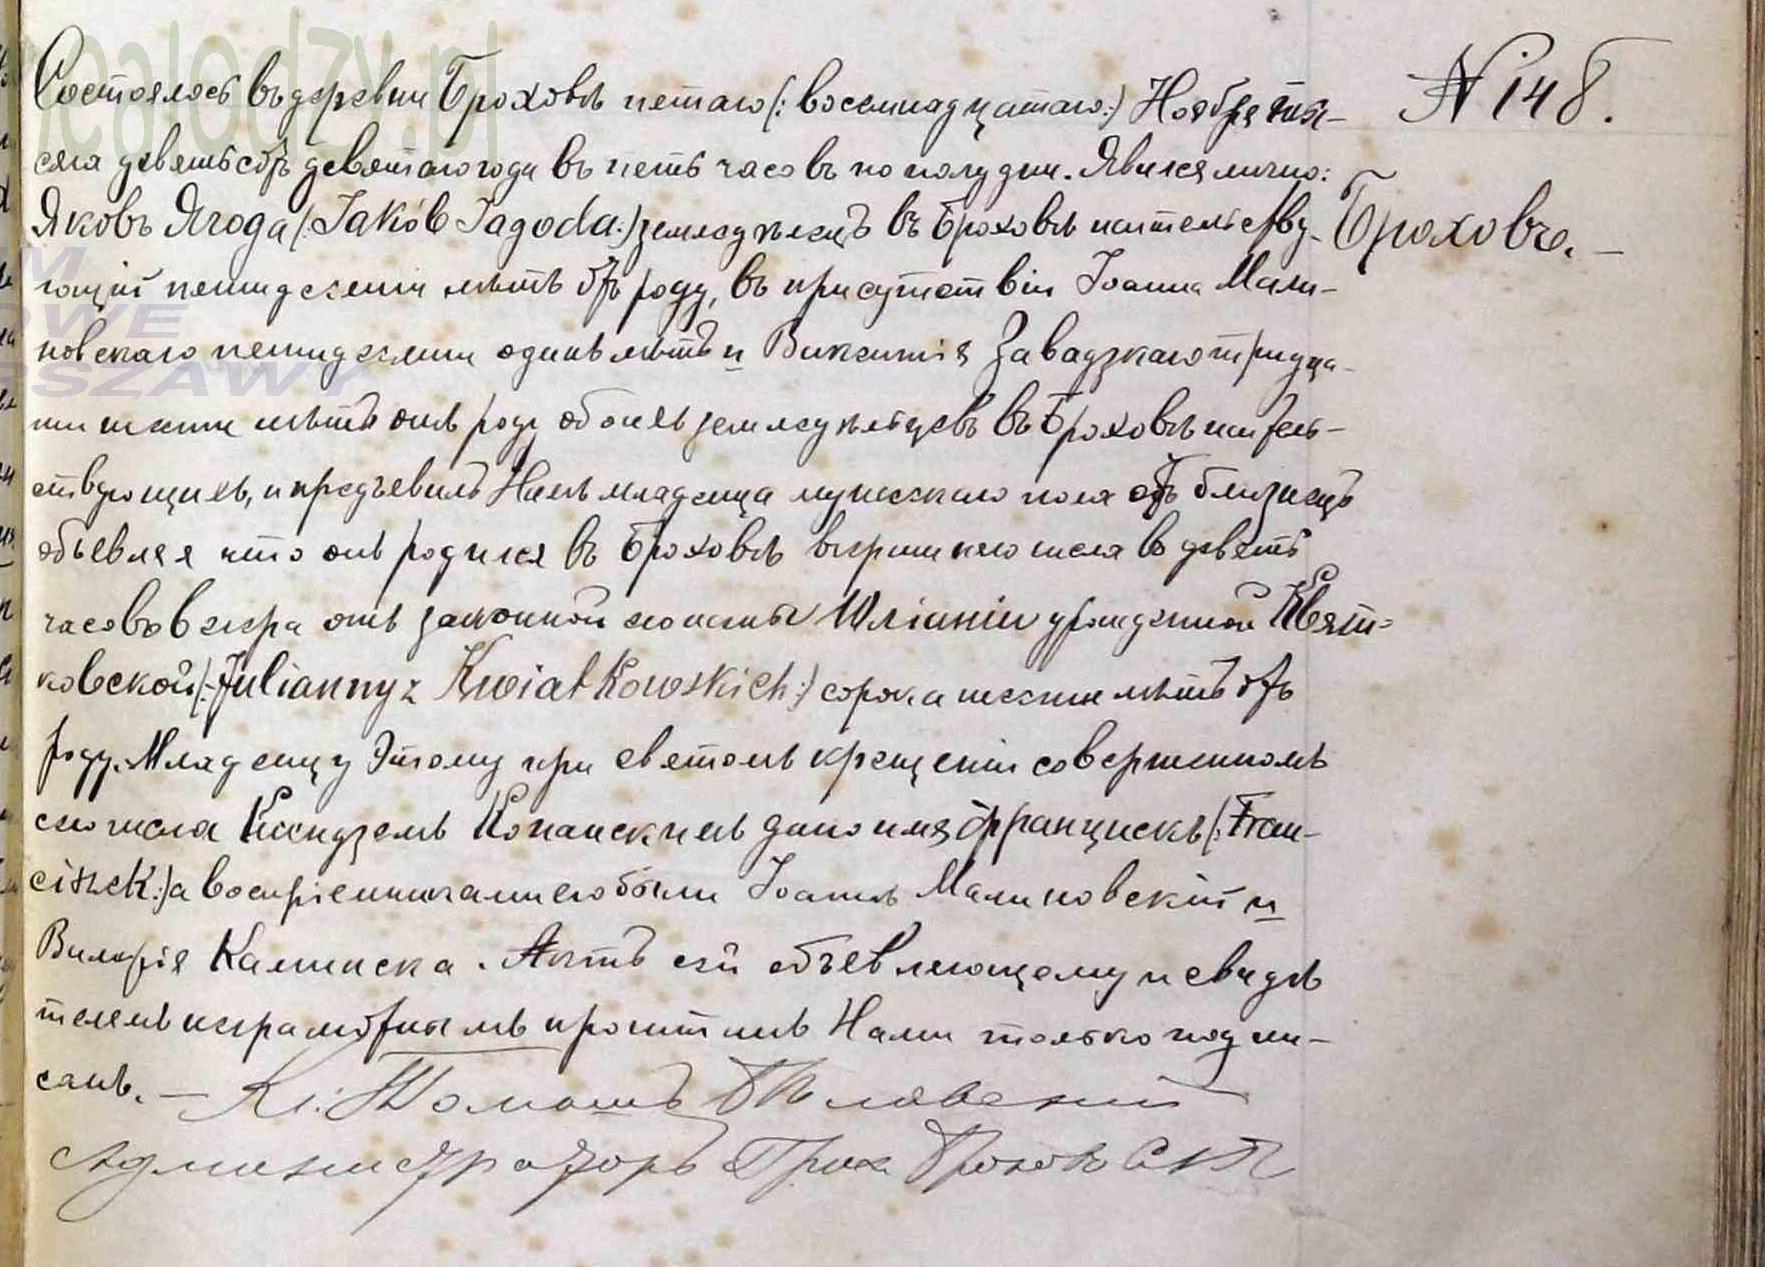 Состоялось въ деревни Броховѣ петаго (: восемнадцатаго :) Ноября тися-
сяча девятьсотъ девятаго года въ петь часовъ по полудни. Явился лично:
Яковъ Ягода (: Jakób Jagoda :) земледѣлецъ въ Броховѣ жительству-
ющій петидесети лѣтъ отъ роду, въ присутствіи Іоанна Мали-
новскаго петидесети одинъ лѣтъ и Викентія Завадзкаго тридца-
ти шести лѣтъ отъ роду обоихъ земледѣльцевъ въ Броховѣ житель-
ствующихъ, и предъевилъ Намъ младенца мужескаго пола отъ близнецъ
объевляя что онъ родился въ Броховѣ вчерашняго числа въ девять
часовъ вечера отъ законной его жены Юліанны урожденной Квят-
ковской (: Julianny z Kwiatkowskich :) сорока шести лѣтъ отъ
роду. Младенцу этому при светомъ крещеніи совершенномъ
сего числа Ксендземъ Копанскимъ дано имя Францискъ (: Fran-
ciszek :) а воспріемниками его были Іоаннъ Малиновскій и
Валерія Каминска. Актъ сей объевляющему и свидѣ
телемъ неграмотнымъ прочитанъ Нами только подпи-
санъ. — Кс: Томашъ
Администраторъ Прих. Броховскій
N 148.
Броховъ. —
genealodzy.pl
WARSZAWY